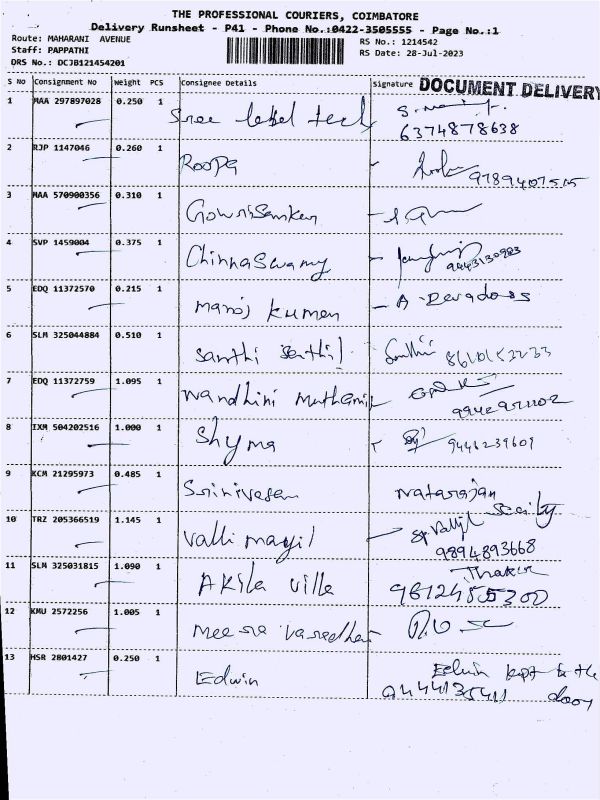 THE PROFESSIONAL COURIERS, COIMBATORE
Delivery Runsheet - P41 - Phone No.:0422-3505555 - Page No.:1
Route: MAHARANI AVENUE
Staff: PAPPATHI
DRS No.: DCJB121454201
RS No.: 1214542
RS Date: 28-Jul-2023
S No Consignment No Weight PCS Consignee Details Signature DOCUMENT DELIVERY
1 MAA 297897028 0.250 1 Sree label tech
6374878638
2 RJP 1147046 0.260 1 Roopa
3 MAA 570900356 0.310 1 Gowrisankar
4 SVP 1459004 0.375 1 Chinnaswamy
5 EDQ 11372570 0.215 1 manoj kumar - A. Devadoss
6 SLM 325044884 0.510 1 Santhi Senthil
7 EDQ 11372759 1.095 1 Nandhini Muthamil
8 IXM 504202516 1.000 1 Shyma 9446239601
9 KCM 21295973 0.485 1 Srinivasan Natarajan
10 TRZ 205366519 1.145 1 Valli mayil
9894893668
11 SLM 325031815 1.090 1 Akila ville
12 KMU 2572256 1.005 1 Meera Varadhan
13 HSR 2801427 0.250 1 Edwin Edwin kept to the
door